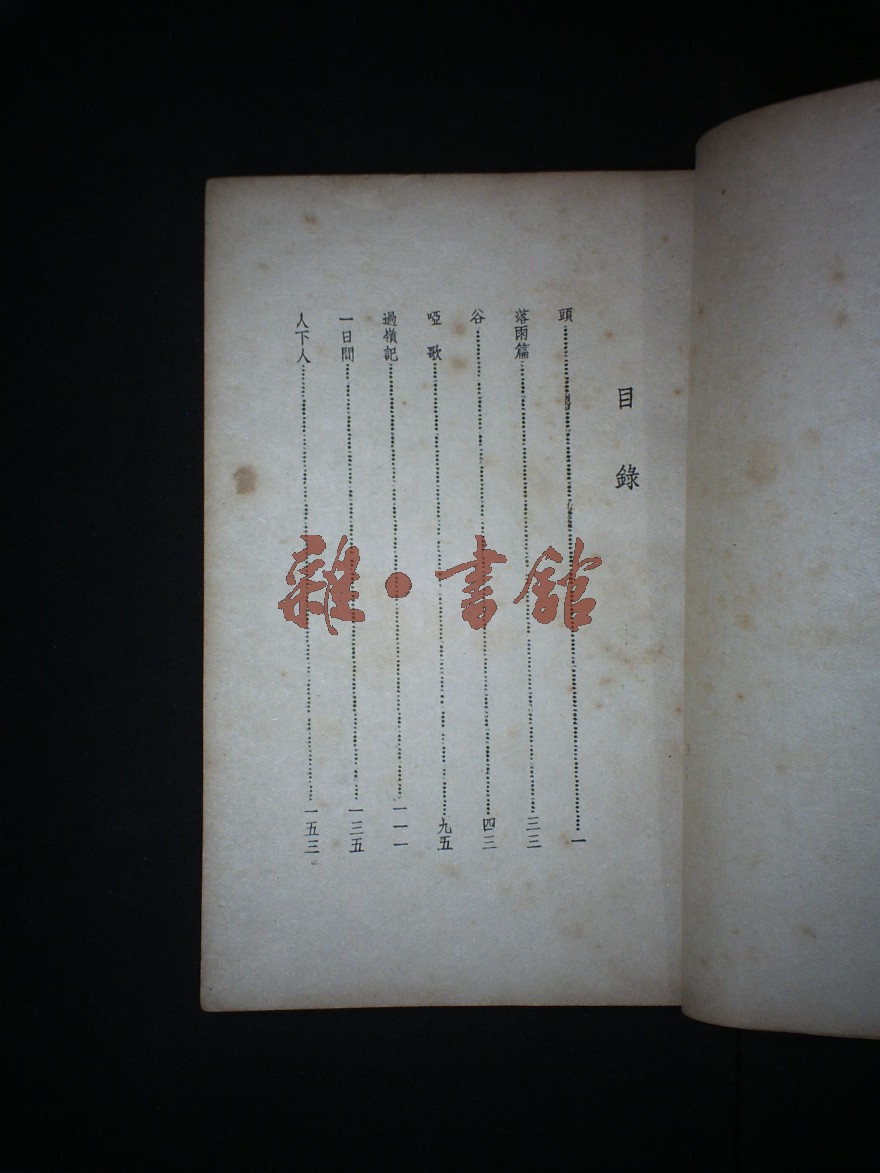 目錄
頭……一
落雨篇……三三
谷……四三
啞歌……九五
過嶺記……一一一
一日間……一三五
人下人……一五三
雜·書館